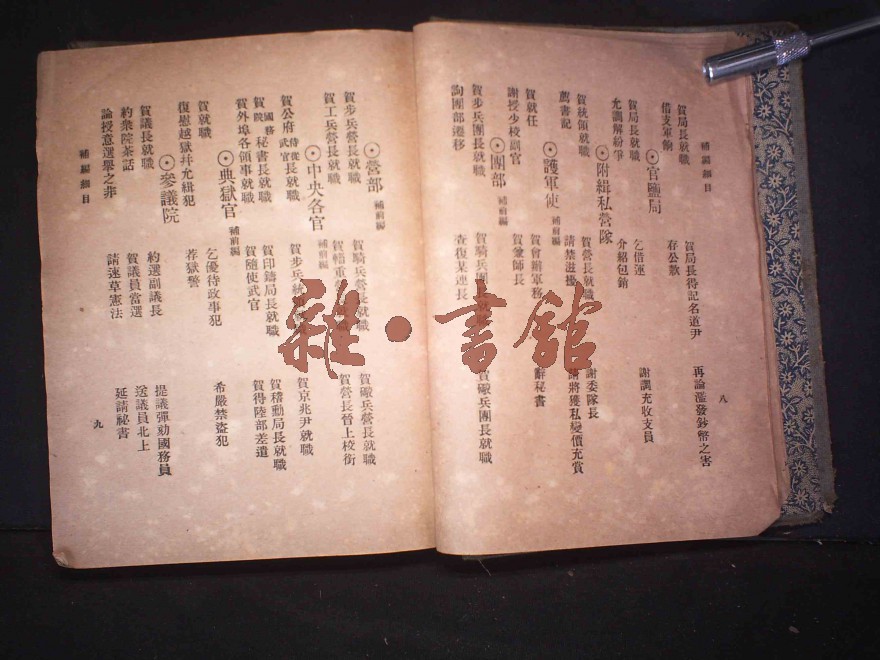 補編細目
八
賀局長就職
賀局長得記名道尹
再論濫發鈔幣之害
借支軍餉
存公款
⊙官鹽局
賀局長就職
乞借運
謝調充收支員
允調解紛爭
介紹包銷
⊙附緝私營隊
賀統領就職
賀營長就職
謝委隊長
薦書記
請禁滋擾
謝將獲私變價充賞
⊙護軍使 補前編
賀就任
賀會辦軍務
辭秘書
謝授少校副官
賀兼師長
⊙團部 補前編
賀步兵團長就職
賀騎兵團長就職
賀礮兵團長就職
詢團部遷移
查復某連長
⊙營部 補前編
賀步兵營長就職
賀騎兵營長就職
賀礮兵營長就職
賀工兵營長就職
賀輜重
賀營長晉上校銜
⊙中央各官 補前編
賀公府侍從武官長就職
賀步兵統
賀京兆尹就職
賀國務院秘書長就職
賀印鑄局長就職
賀稽勳局長就職
賀外埠各領事就職
賀隨使武官
賀得陸部差遣
⊙典獄官 補前編
賀就職
乞優待政事犯
希嚴禁盜犯
復慰越獄幷允緝犯
荐獄警
⊙參議院
賀議長就職
約選副議長
提議彈劾國務員
約衆院茶話
賀議員當選
送議員北上
論授意選舉之非
請速草憲法
延請秘書
補編細目
九
雜·書館